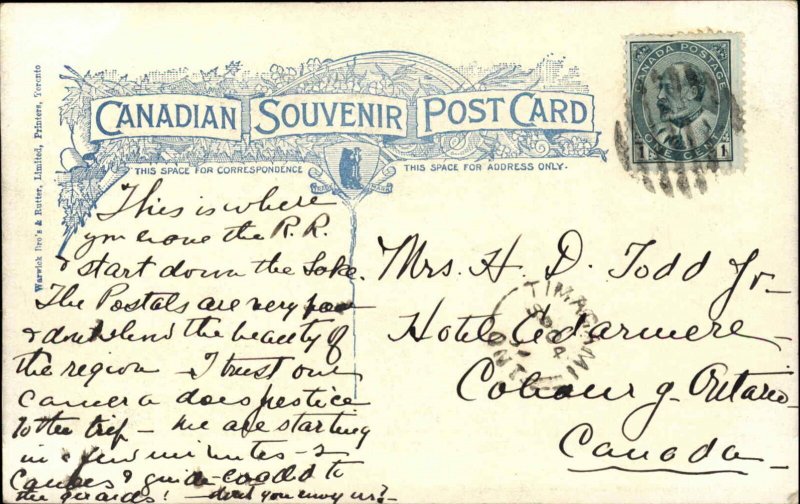 CANADIAN SOUVENIR POST CARD
THIS SPACE FOR CORRESPONDENCE
THIS SPACE FOR ADDRESS ONLY.
Warwick Bro's & Rutter, Limited, Printers, Toronto
CANADA POSTAGE
1 ONE CENT 1
This is where
you leave the R.R.
& start down the Lake.
The Postals are very poor
& don't lend the beauty of
the region I trust our
camera does justice
to the trip — We are starting
in a few minutes - 2
Canoes & guide loaded to
the guards! don't you envy us?
Mrs. H. D. Todd Jr
Hotel Cedarmere
Cobourg, Ontario
Canada
TIMAGAMI
ONT